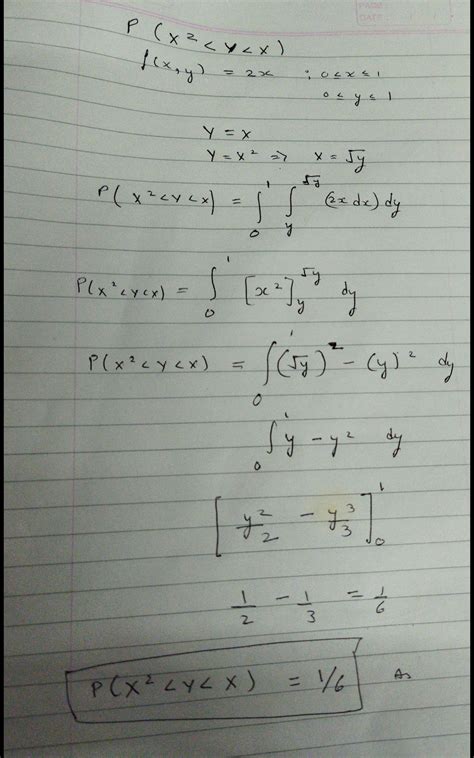 P (X² < Y < X)
f(x, y) = 2x ; 0 ≤ x ≤ 1
0 ≤ y ≤ 1
Y = X
Y = X² => X = √y
P( X² < Y < X) = ∫₀¹ ∫_y^√y (2x dx) dy
P(X² < Y < X) = ∫₀¹ [x²]_y^√y dy
P(X² < Y < X) = ∫₀¹ (√y)² - (y)² dy
∫₀¹ y - y² dy
[y²/2 - y³/3]₀¹
1/2 - 1/3 = 1/6
P(X² < Y < X) = 1/6